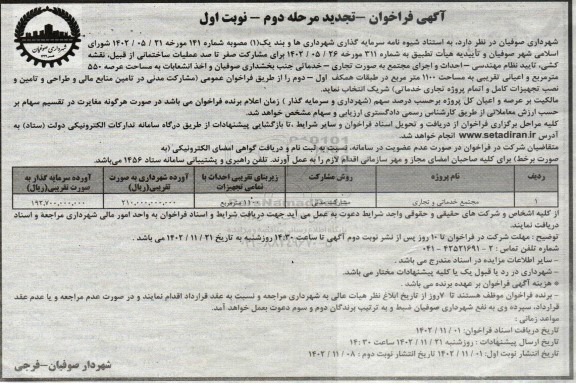 آگهی فراخوان –تجدید مرحله دوم – نوبت اول
شهرداری صوفیان
شهرداری صوفیان در نظر دارد، به استناد شیوه نامه سرمایه گذاری شهرداری ها و بند یک(۱) مصوبه شماره ۱۴۱ مورخه ۲۱ / ۰۵ / ۱۴۰۲ شورای
اسلامی شهر صوفیان و تأییدیه هیأت تطبیق به شماره ۳۱۱ مورخه ۲۶ / ۰۵ / ۱۴۰۲ برای مشارکت صفر تا صد عملیات ساختمانی از قبیل، نقشه
کشی، تایید نظام مهندسی –احداث و اجرای مجتمع به صورت تجاری – خدماتی جنب بخشداری صوفیان و اخذ انشعابات به مساحت عرصه ۵۵۰
مترمربع و اعیانی تقریبی به مساحت ۱۱۰۰ متر مربع در طبقات همکف اول –دوم را از طریق فراخوان عمومی (مشارکت مدنی در تامین منابع مالی و طراحی و تامین و
نصب تجهیزات کامل و اتمام پروژه تجاری خدماتی) شریک انتخاب نماید.
مالکیت بر عرصه و اعیان کل پروژه برحسب درصد سهم (شهرداری و سرمایه گذار ) زمان اعلام برنده فراخوان می باشد در صورت هرگونه مغایرت در تقسیم سهام بر
حسب ارزش معاملاتی از طریق کارشناس رسمی دادگستری ارزیابی و سهام مشخص خواهد شد.
کلیه مراحل برگزاری فراخوان از دریافت و تحویل اسناد فراخوان و سایر شرایط ،تا بازگشایی پیشنهادات از طریق درگاه سامانه تدارکات الکترونیکی دولت (ستاد) به
آدرس www.setadiran.ir انجام خواهد شد.
متقاضیان شرکت در فراخوان در صورت عدم عضویت در سامانه، نسبت به ثبت نام و دریافت گواهی امضای الکترونیکی (به
صورت برخط) برای کلیه صاحبان امضای مجاز و مهر سازمانی اقدام لازم را به عمل آورند. تلفن راهبری و پشتیبانی سامانه ستاد ۱۴۵۶ می‌باشد.
ردیف	نام پروژه	روش مشارکت	زیربنای تقریبی احداث با تمامی تجهیزات	آورده شهرداری به صورت تقریبی(ریال)	آورده سرمایه گذار به صورت تقریبی(ریال)
۱	مجتمع خدماتی و تجاری	مشارکت مدنی	۱۱۰۰ مترمربع	۲۱۰,۰۰۰,۰۰۰,۰۰۰	۱۹۲,۷۰۰,۰۰۰,۰۰۰
از کلیه اشخاص و شرکت های حقیقی و حقوقی واجد شرایط دعوت به عمل می آید جهت دریافت شرایط و اسناد فراخوان به واحد امور مالی شهرداری مراجعه و اسناد
دریافت نمایند.
توضیح : مهلت شرکت در فراخوان تا ۱۰ روز پس از نشر نوبت دوم آگهی تا ساعت ۱۴:۳۰ روزشنبه به تاریخ ۲۱ / ۱۱ / ۱۴۰۲ می باشد .
شماره تلفن تماس: ۳ - ۴۲۵۲۱۶۹۱ - ۰۴۱
- سایر اطلاعات مزایده در اسناد مندرج می باشد .
- شهرداری در رد یا قبول یک یا کلیه پیشنهادات مختار می باشد.
* هزینه آگهی فراخوان بر عهده برنده می باشد .
- برنده فراخوان موظف هستند تا ۷روز از تاریخ ابلاغ نظر هیات عالی به شهرداری مراجعه و نسبت به عقد قرارداد اقدام نمایند و در صورت عدم مراجعه و یا عدم عقد
قرارداد، سپرده وی به نفع شهرداری صوفیان ضبط و به ترتیب برندگان دوم و سوم دعوت بعمل خواهد آمد.
مواعد زمانی :
تاریخ دریافت اسناد فراخوان: ۰۱ / ۱۱ / ۱۴۰۲
تاریخ ارسال پیشنهادات : روزشنبه ۲۱ / ۱۱ / ۱۴۰۲ ساعت ۱۴:۳۰
تاریخ انتشار نوبت اول: ۰۱ / ۱۱ / ۱۴۰۲ تاریخ انتشار نوبت دوم : ۰۸ / ۱۱ / ۱۴۰۲
شهردار صوفیان–فرجی